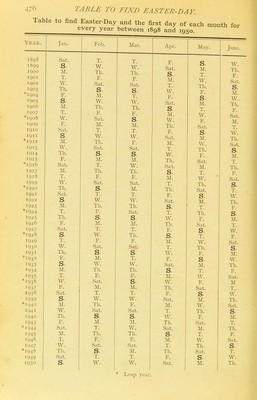 476 TABLE TO FIND EASTER-DAY.
Table to find Easter-Day and the first day of each month for
every year between 1898 and 1950.
YEAR. Jan. Feb. Mar. Apr. May. June.
1898 Sat. T. T. F. S W.
1899 S W. W. Sat. M. Th.
1900 M. Th. Th. S T. F.
1901 T. F. F. M. W. Sat.
1902 W. Sat. Sat. T. Th. S
1903 Th. S S W. F. M.
*1904 F. M. T. F. S W.
1905 S W. W. Sat. M. Th.
1906 M. Th. Th. S T. F.
1907 T. F. F. M. W. Sat.
*1908 W. Sat. S W. F. M.
1909 F. M. M. Th. Sat. T.
1910 Sat. T. T. F. S W.
1911 S W. W. Sat. M. Th.
*1912 M. Th. F. M. W. Sat.
1913 W. Sat. Sat. T. Th. S
1914 Th. S S W. F. M.
1915 F. M. M. Th. Sat. T.
*1916 Sat. T. W. Sat. M. Th.
1917 M. Th. Th. S T. F.
1918 T. F. F. M. W. Sat.
1919 W. Sat. Sat. T. Th. S
*1920 Th. S M. Th. Sat. T.
1921 Sat. T. T. F. S W.
1922 S W. W. Sat. M. Th.
1923 M. Th. Th. S T. F.
*1924 T. F. Sat. T. Th. S
1925 Th. S S W. F. M.
1926 F. M. M. Th. Sat. T.
1927 Sat. T. T. F. S W.
*1928 S W. Th. S T. F.
1929 T. F. F. M. W. Sat.
1930 W. Sat. Sat. T. Th. S
1931 Th. S S W. F. M.
*1932 F. M. T. F. S W.
1933 S W. W. Sat. M. Th.
1934 M. Th. Th. S T. F.
1935 T. F. F. M. W. Sat.
*1936 W. Sat. S W. F. M.
1937 F. M. M. Th. Sat. T.
1938 Sat. T. T. F. S W.
1939 S W. W. Sat. M. Th.
*1940 M. Th. F. M. W. Sat.
1941 W. Sat. Sat. T. Th. S
1942 Th. S S W. F. M.
1943 F. M. M. Th. Sat. T.
*1944 Sat. T. W. Sat. M. Th.
1945 M. Th. Th. S T. F.
1946 T. F. F. M. W. Sat.
1947 W. Sat. Sat. T. Th. S
*1948 Th. S M. Th. Sat. T.
1949 Sat. T. T. F. S W.
1950 S W. W. Sat. M. Th.
* Leap year.